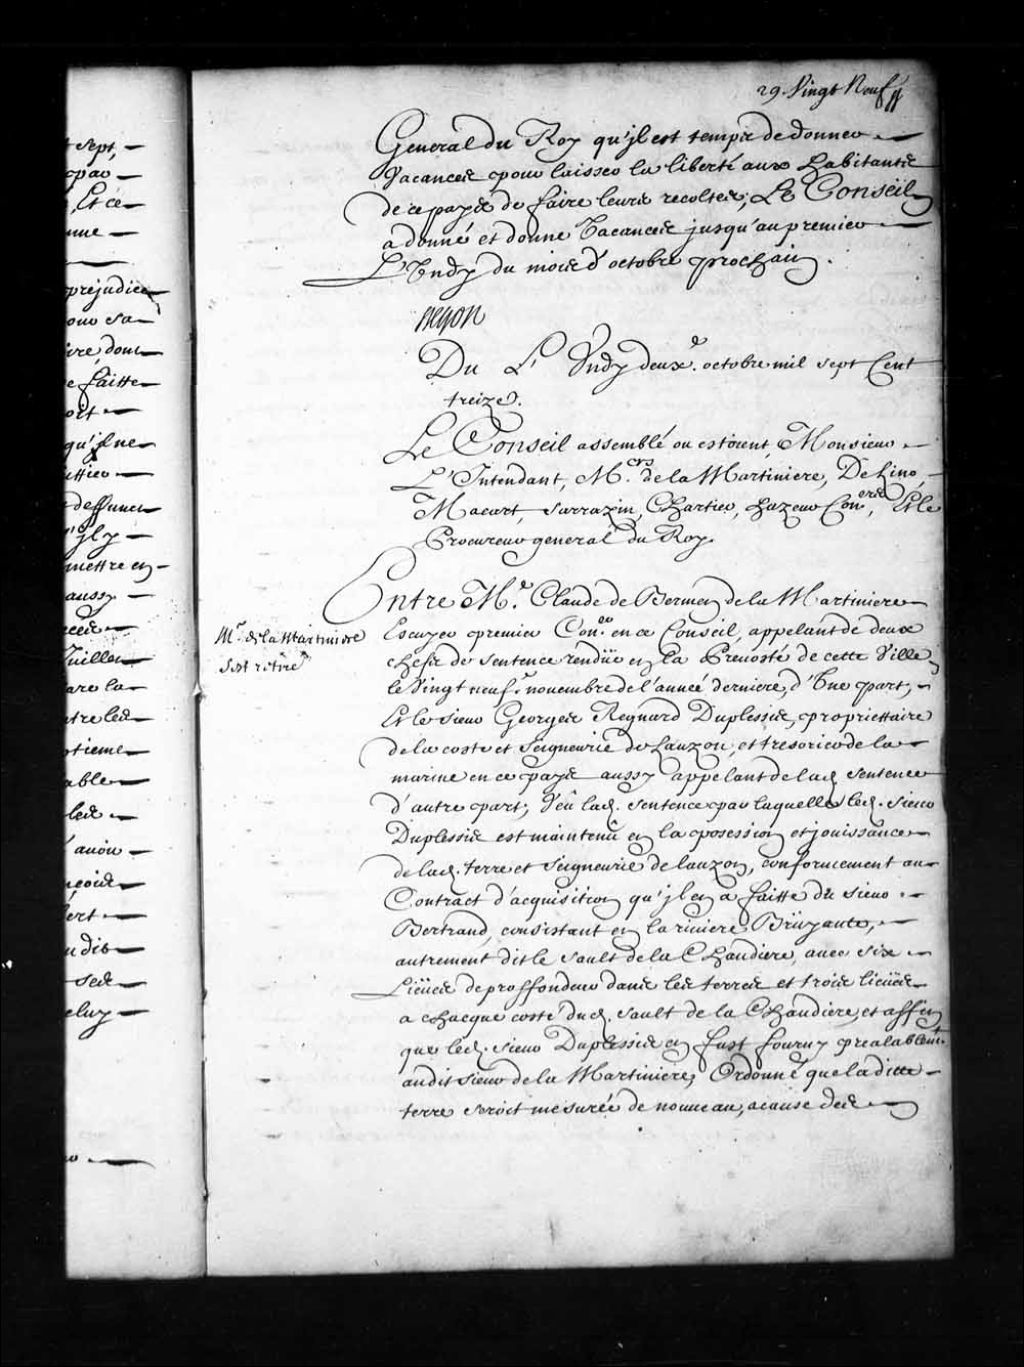 29. Vingt Neuf
General du Roy qu'jl est temps de donner
Vacances pour laisser la liberté aux habitants
de ce pays de faire leurs recoltes; Le Conseil
a donné et donne Vacances jusqu'au premier
L'Undy du mois d'octobre prochain.
Du L'Undy deuxe. octobre mil sept Cent
treize.
Le Conseil assemblé ou estoient, Monsieur
L'Intendant, Mrs. de la Martiniere, De Lino,
Macart, Sarrazin, Chartier, hazeur Coners, Et le
Procureur general du Roy.
Entre Me. Claude de Bermen de la Martiniere
Mr. de la Martiniere
s'est retiré
Escuyer premier Coner. en ce Conseil, appelant de deux
chefs de sentence rendüe en la Prevosté de cette Ville
le Vingt neufe. novembre de l'année derniere, d'Une part,
Et le sieur Georges Regnard Duplessis, propriettaire
de la coste et Seigneurie de Lauzon, et tresorier de la
marine en ce pays aussy appelant de lad. sentence
d'autre part; Veû lad. sentence par laquelle led. sieur
Duplessis est maintenû en la posession et jouissance
de lad. terre et seigneurie de lauzon, conformement au
Contract d'acquisition qu'jl en a faitte du sieur
Bertrand, consistant en la riviere Brüyante,
autrement dit le sault de la Chaudiere, avec six
Lieües de proffondeur dans les terres et trois lieües
a chacque costé dud. sault de la Chaudiere, et affin
que led. sieur Duplessis en fust fourny prealablemt.
audit sieur de la Martiniere, Ordonné que la ditte
terre seroit mesurée de nouveau, a cause des
t sept,
par
, Et ce
une
prejudice
our sa
ire, dont
e faitte
ort
qu'jl ne
deffunct
'jl y
mettre en
aussy
Juillet
are la
ntre les
ptieme
able
les
avoir
vert
u dit
ses
eluy